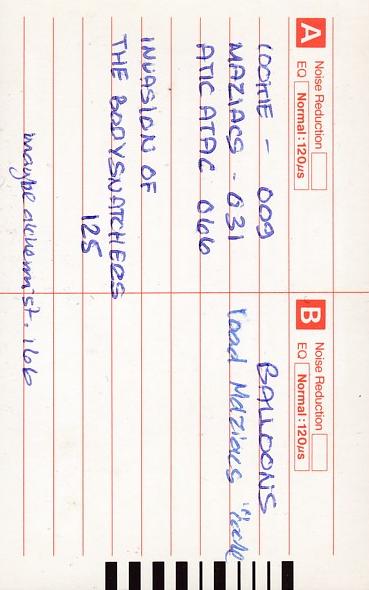 A Noise Reduction
EQ Normal:120µs
- 009
MAZIACS - 031
ATIC ATAC 066
INVASION OF
THE BODYSNATCHERS
125
maybe alchemist. 166
B Noise Reduction
EQ Normal:120µs
BALLOONS
load Maziacs